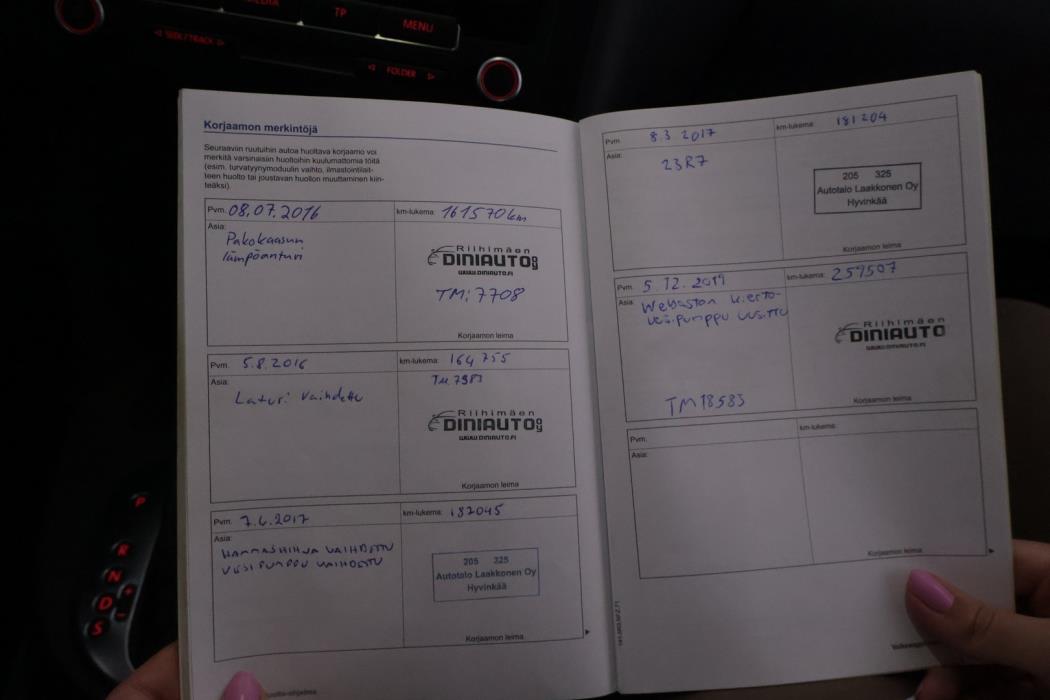 MEDIA
TP
MENU
◁ SEEK/TRACK ▷
◁ FOLDER ▷
Korjaamon merkintöjä
Seuraaviin ruutuihin autoa huoltava korjaamo voi
merkitä varsinaisiin huoltoihin kuulumattomia töitä
(esim. turvatyynymoduulin vaihto, ilmastointilait-
teen huolto tai joustavan huollon muuttaminen kiin-
teäksi).
Pvm. 08.07.2016
km-lukema: 161570km
Asia:
Pakokaasun
lämpöanturi
Riihimäen
DINIAUTO OY
WWW.DINIAUTO.FI
TM: 7708
Korjaamon leima
Pvm. 5.8.2016
km-lukema: 164 755
Asia:
Laturi vaihdettu
TM.7983
Riihimäen
DINIAUTO OY
WWW.DINIAUTO.FI
Korjaamon leima
Pvm. 7.6.2017
km-lukema: 187045
Asia:
HAMMASHIHNA VAIHDETTU
VESIPUMPPU VAIHDETTU
205 325
Autotalo Laakkonen Oy
Hyvinkää
Korjaamon leima
Pvm. 8.3 2017
km-lukema: 181 204
Asia:
23R7
205 325
Autotalo Laakkonen Oy
Hyvinkää
Korjaamon leima
Pvm. 5.12.2019
km-lukema: 259507
Asia:
Webaston kierto-
vesipumppu uusittu
Riihimäen
DINIAUTO
WWW.DINIAUTO.FI
TM18583
Korjaamon leima
Pvm.
km-lukema:
Asia:
Korjaamon leima
P
R
N
D
S
+
-